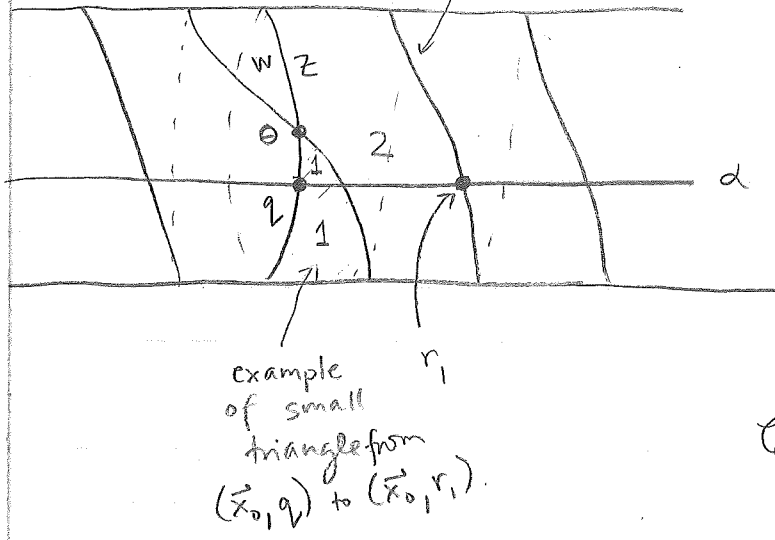 w z
θ 1 2
α
q
1
r₁
example
of small
triangle from
(x⃗₀, q) to (x⃗₀, r₁).